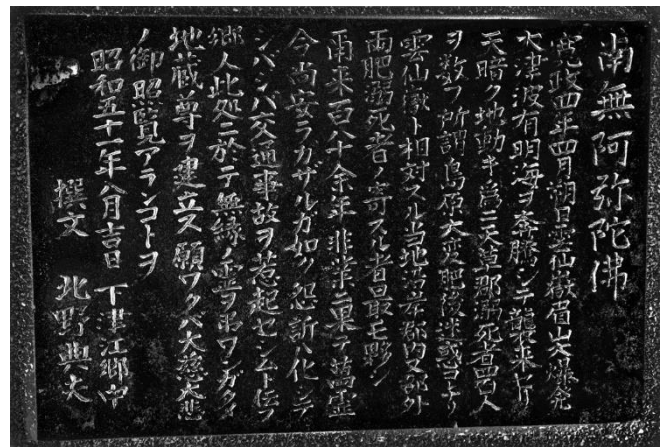 南無阿弥陀佛
寛政四年四月朔日雲仙嶽眉山大爆発
大津波有明海ヲ奔騰シテ襲来ヨリ
天暗ク地動キ為ニ天草郡溺死者四万人
ヲ数フ所謂島原大変肥後迷惑ヨナリ
雲仙嶽ト相対スル当地苓北郡内又郡外
両肥溺死者ノ寄スル者最モ夥シ
爾来百八十余年非業ニ果テ萬霊
今尚安ラカザルカ如ク怨訴ハ化シテ
シバシバ交通事故ヲ惹起セシムト伝フ
郷人此処ニ於テ無縁ノ霊ヲ弔ワンガタメ
地蔵尊ヲ建立ス願ワクバ大慈大悲
ノ御照覧アランコトヲ
昭和五十一年八月吉日 下津江郷中
撰文 北野典夫